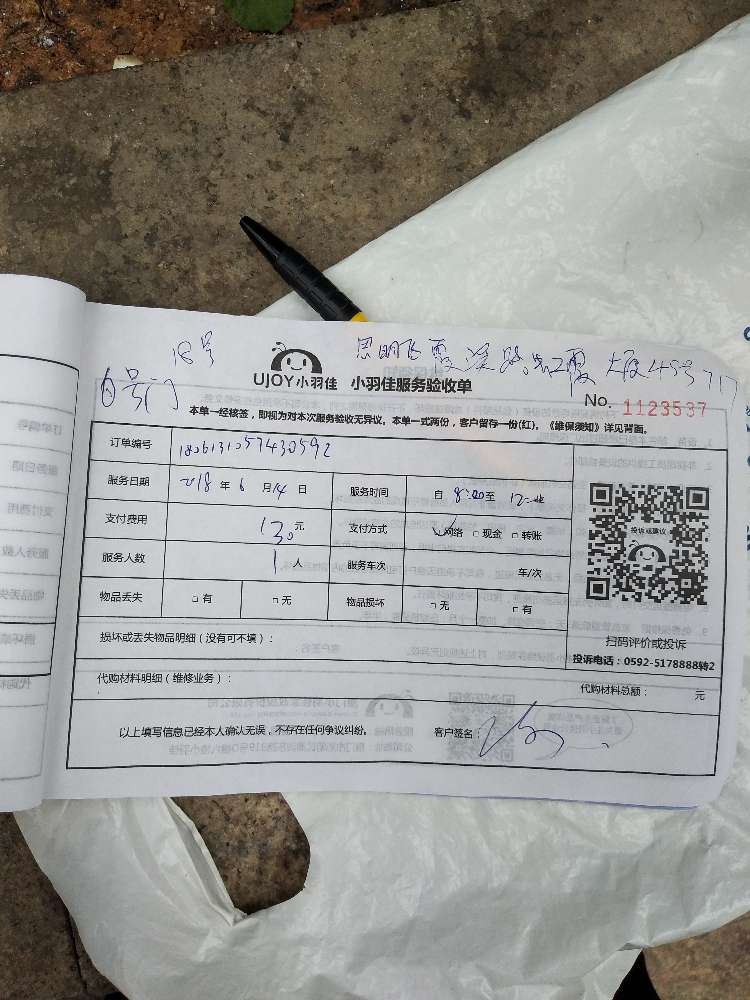 18号
思明区霞溪路 大厦49号717
号门
UJOY小羽佳 小羽佳服务验收单
No. 1123537
本单一经核签，即视为对本次服务验收无异议。本单一式两份，客户留存一份(红)。《维保须知》详见背面。
订单编号 1806131057430592
服务日期 2018 年 6 月 14 日 服务时间 自 8:00 至 12
支付费用 130 元 支付方式 网络 现金 转账
服务人数 1 人 服务车次 车/次
物品丢失 有 无 物品损坏 无 有
投诉或建议
扫码评价或投诉
投诉电话：0592-5178888转2
损坏或丢失物品明细（没有可不填）：
代购材料明细（维修业务）： 代购材料总额： 元
以上填写信息已经本人确认无误，不存在任何争议纠纷。 客户签名：